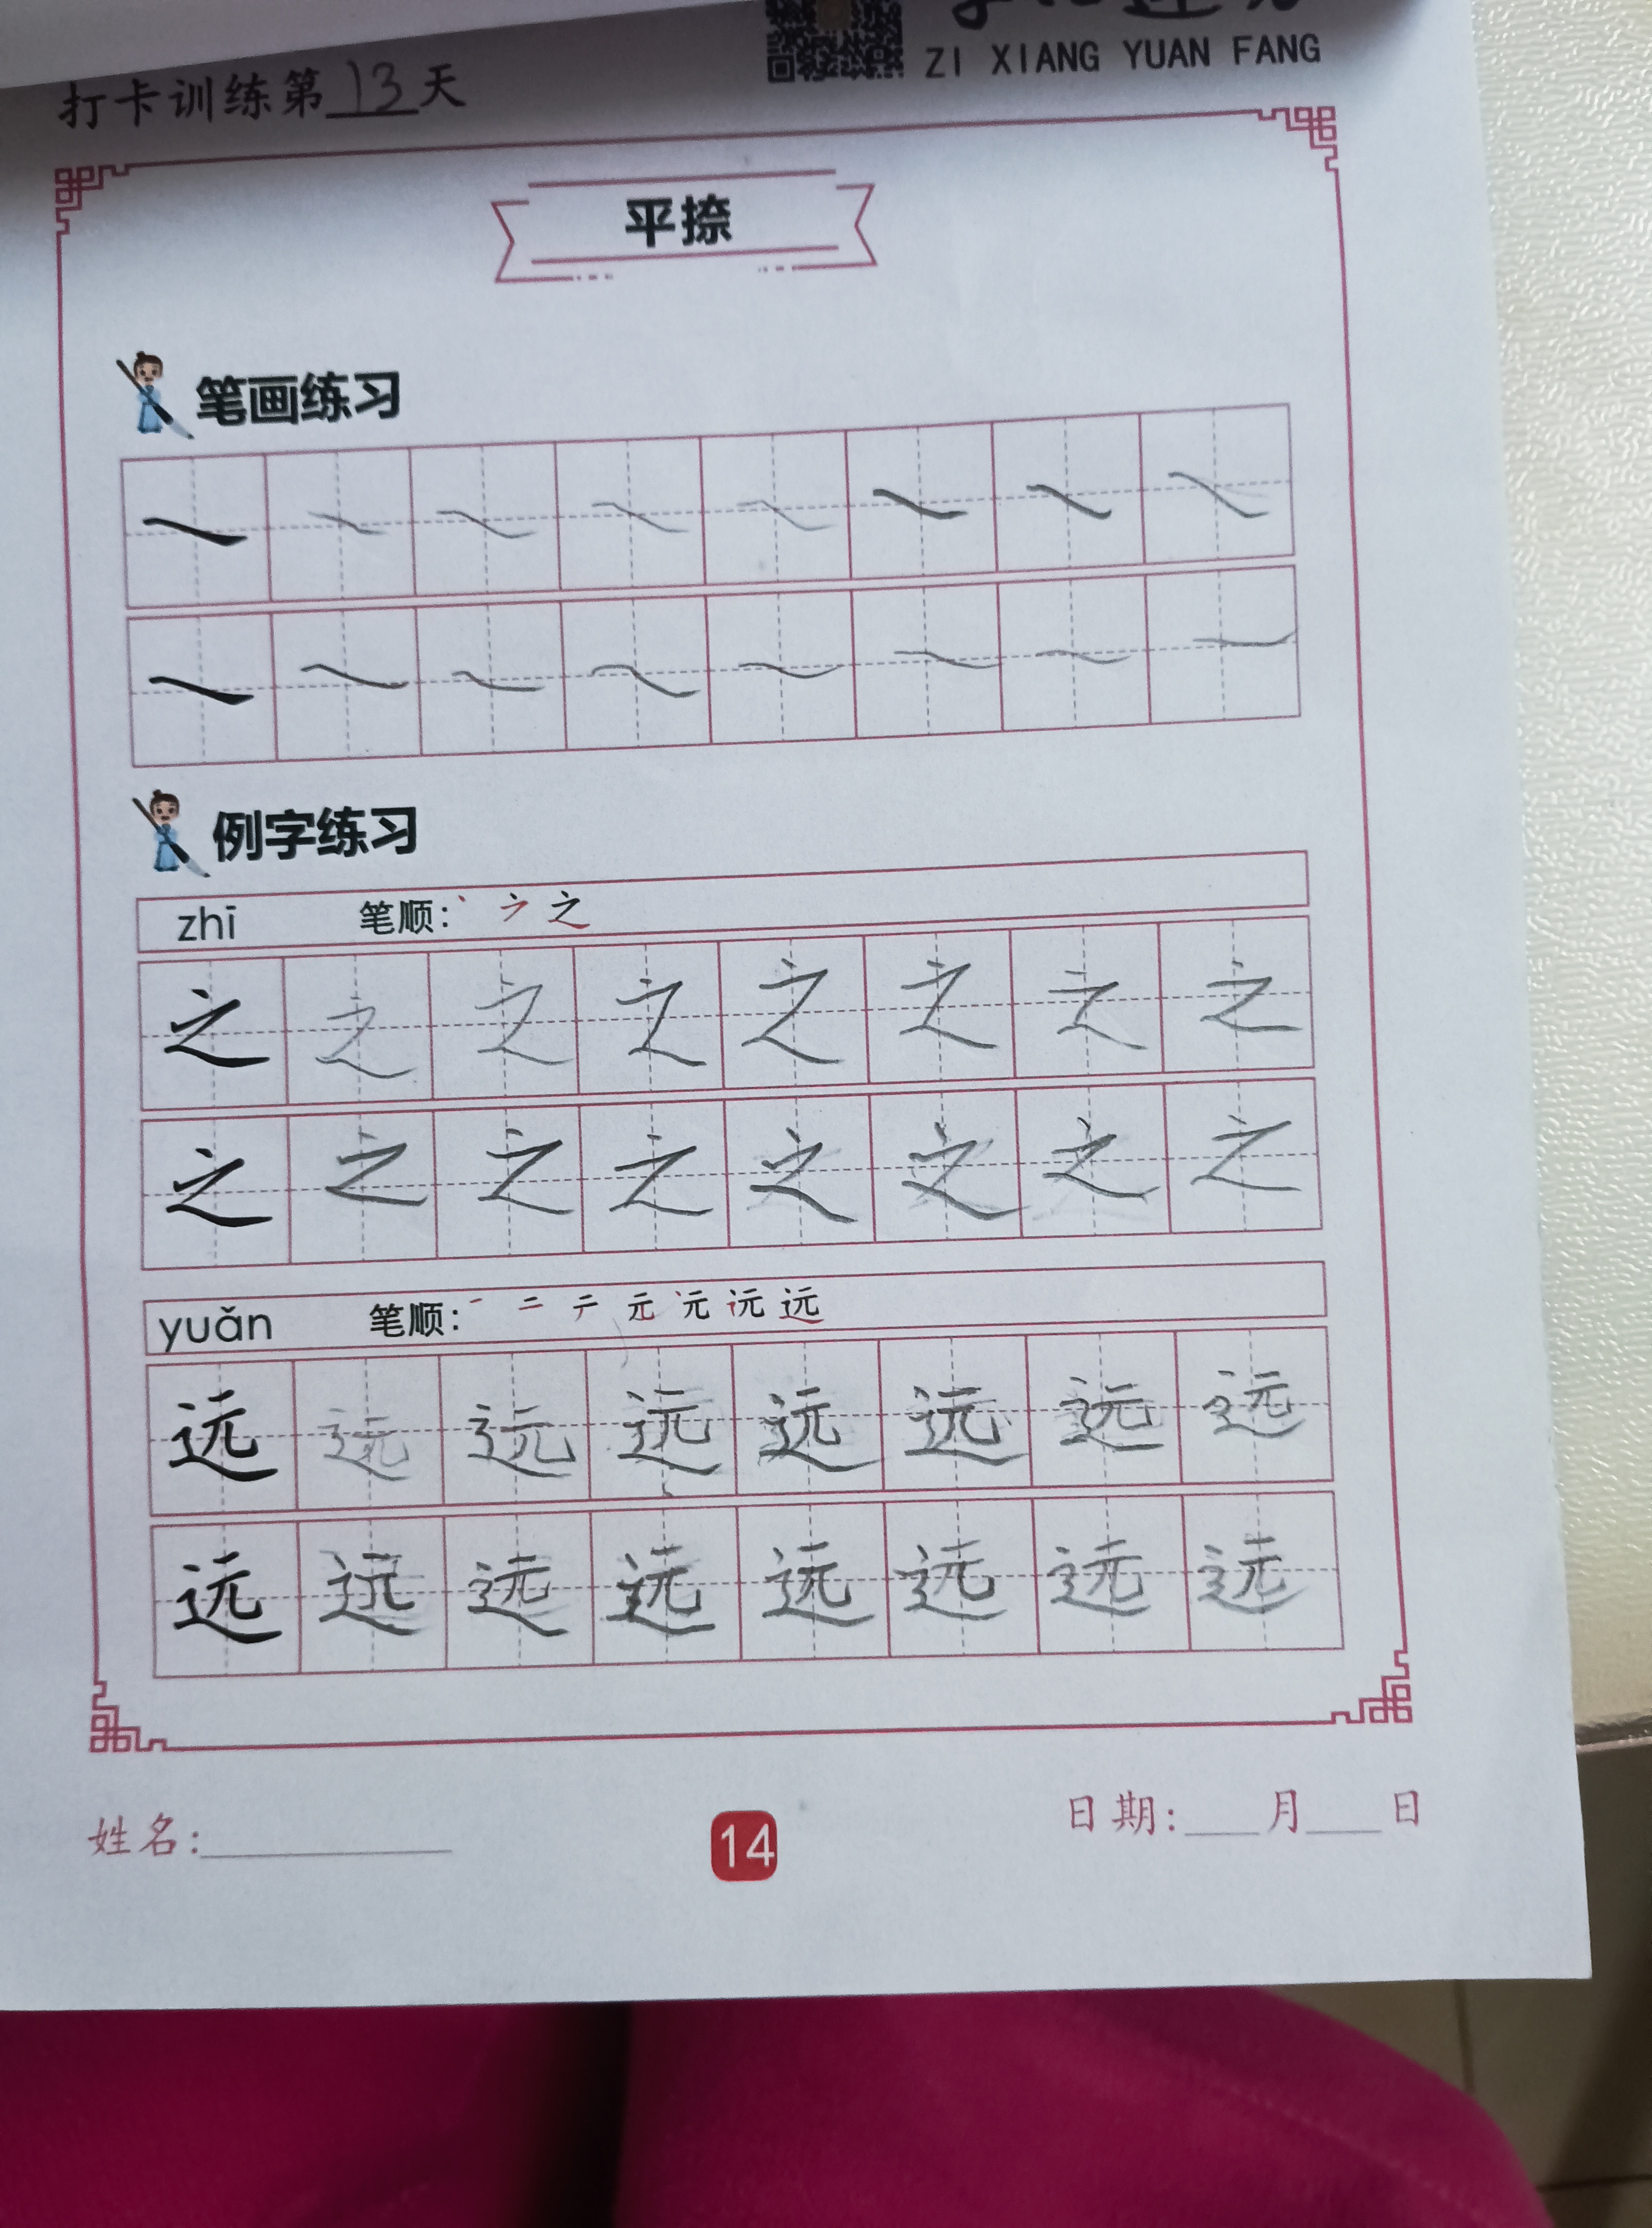 ZI XIANG YUAN FANG
打卡训练第13天
平捺
笔画练习
例字练习
zhī 笔顺: 丶 之
之 之 之 之 之 之 之 之
之 之 之 之 之 之 之 之
yuǎn 笔顺: 一 二 元 远
远 远 远 远 远 远 远 远
远 远 远 远 远 远 远 远
姓名:
14
日期: 月 日